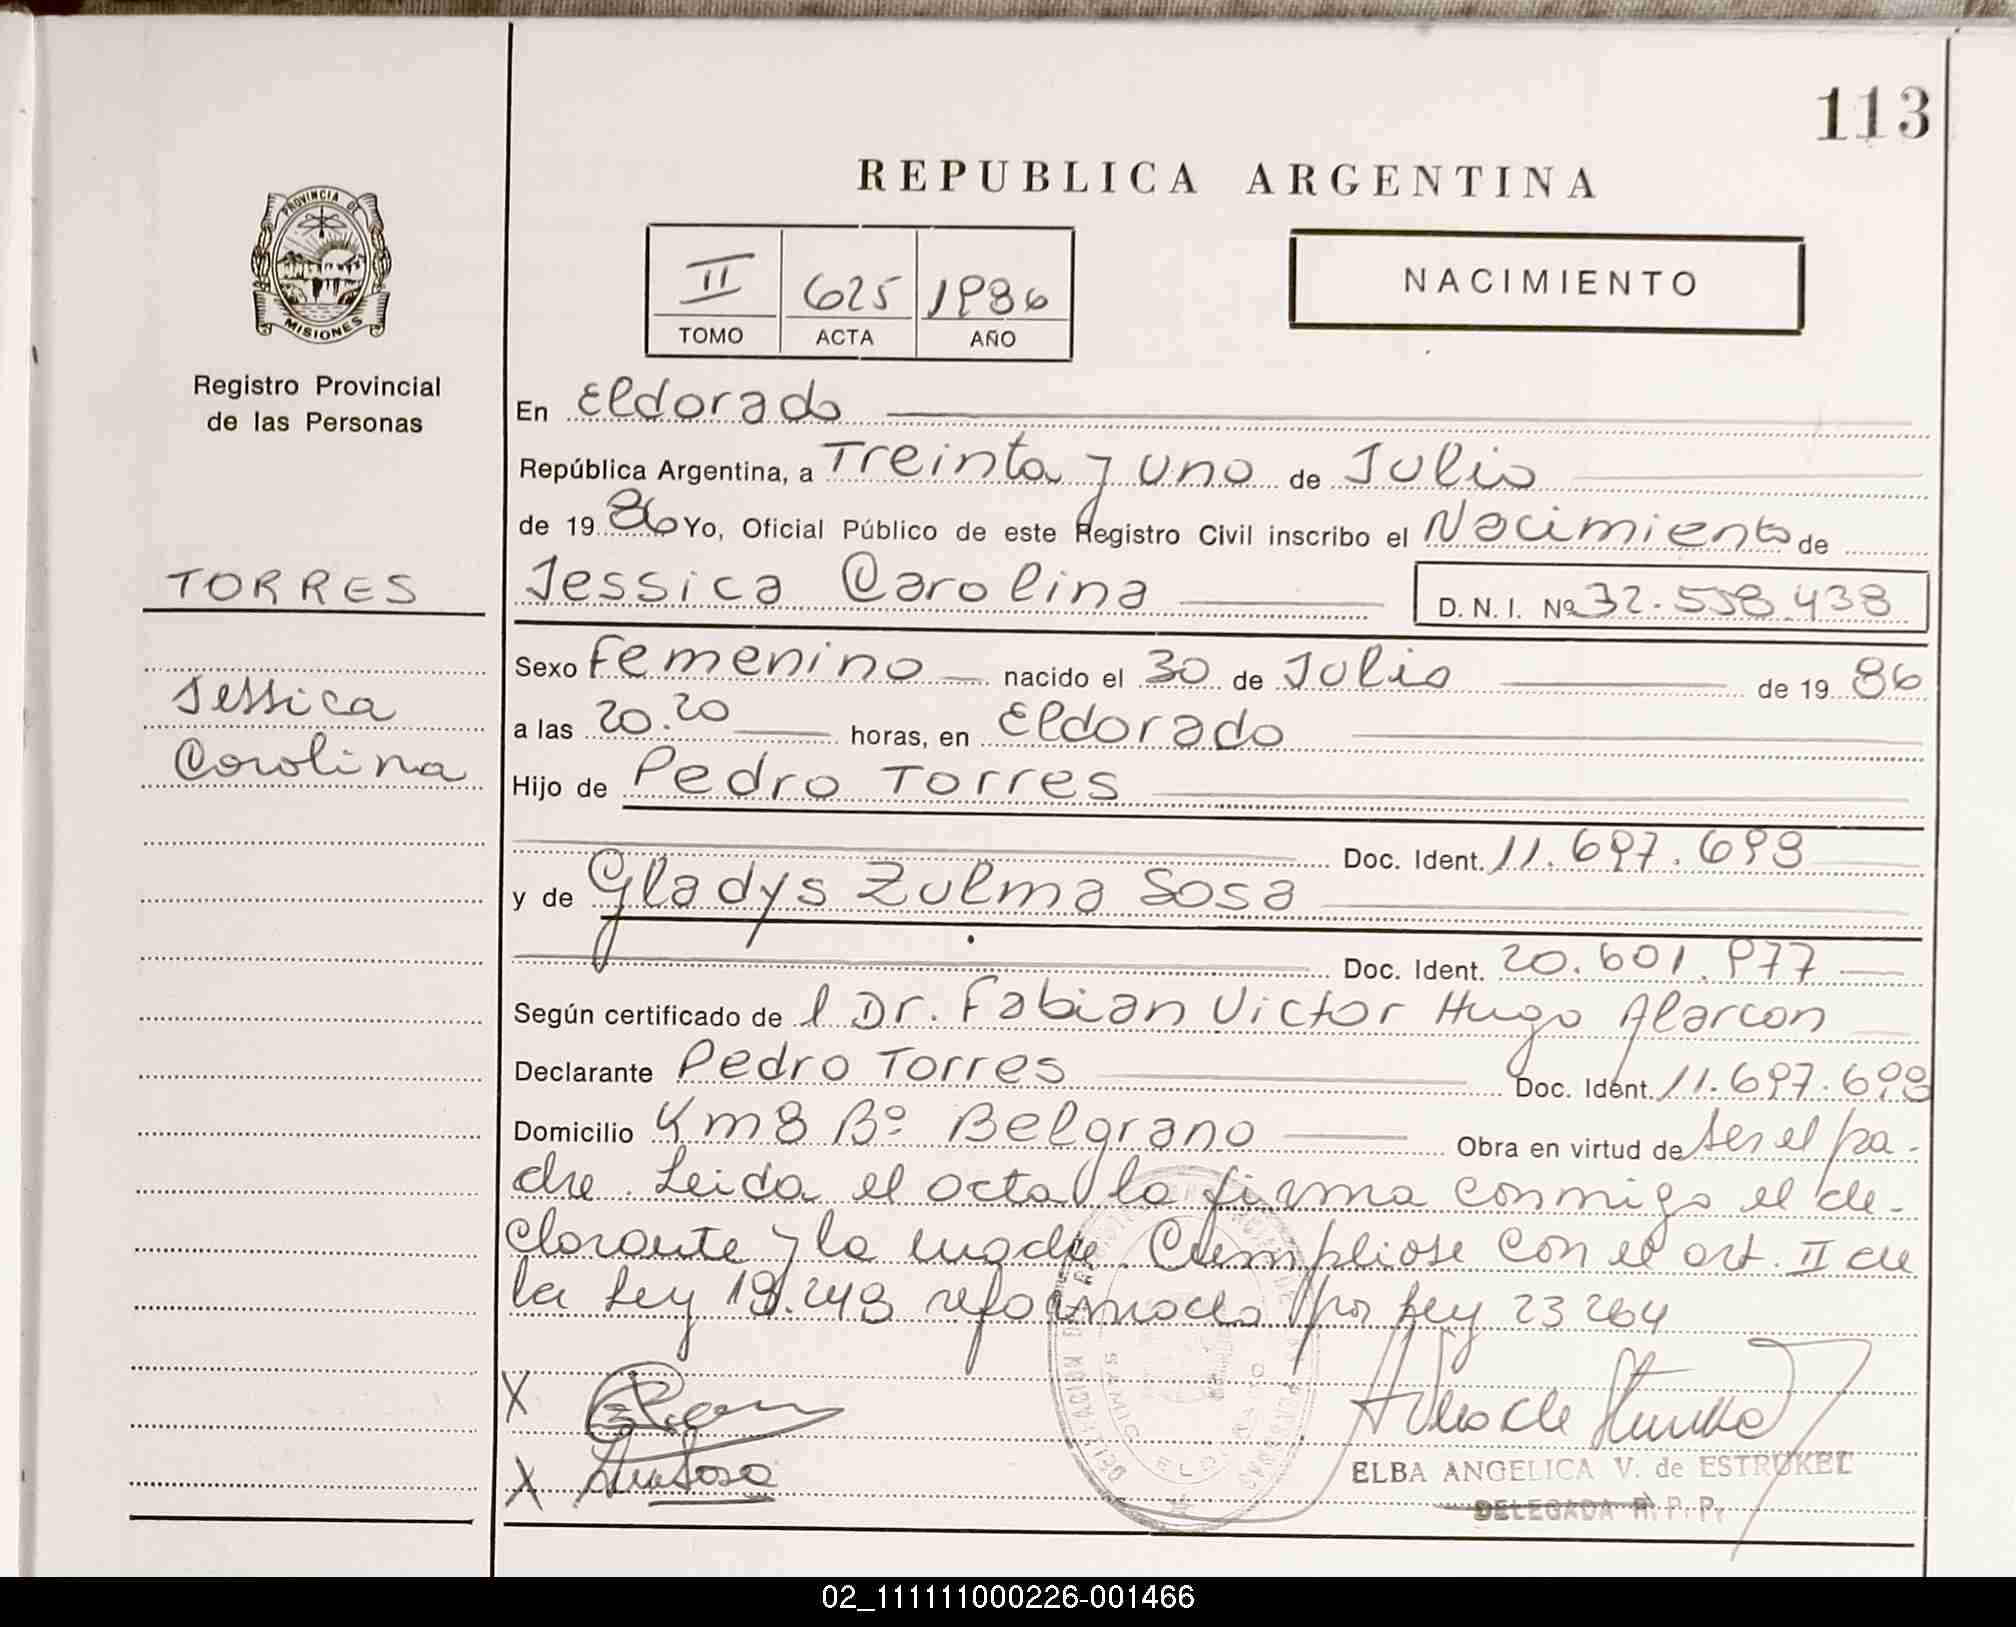 113
REPUBLICA ARGENTINA
PROVINCIA DE
MISIONES
Registro Provincial
de las Personas
II 625 1986
TOMO ACTA AÑO
NACIMIENTO
En Eldorado
República Argentina, a Treinta y uno de Julio
de 19 86 Yo, Oficial Público de este Registro Civil inscribo el Nacimiento de
TORRES
Jessica Carolina D. N. I. Nº 32.558.438
Sexo Femenino nacido el 30 de Julio de 19 86
Jessica
a las 20.20 horas, en Eldorado
Carolina
Hijo de Pedro Torres
Doc. Ident. 11.697.699
y de Gladys Zulma Sosa
Doc. Ident. 20.601.977
Según certificado de l Dr. Fabian Victor Hugo Alarcon
Declarante Pedro Torres Doc. Ident. 11.697.699
Domicilio Km 8 Bº Belgrano Obra en virtud de ser el pa-
dre. Leida el acta la firma conmigo el de-
clarante y la madre. Cumpliose con el art. II de
la Ley 18.248 reformada por Ley 23264
X
X Sosa
ELBA ANGELICA V. de ESTRUKEL
DELEGADA R. P. P.
02_111111000226-001466